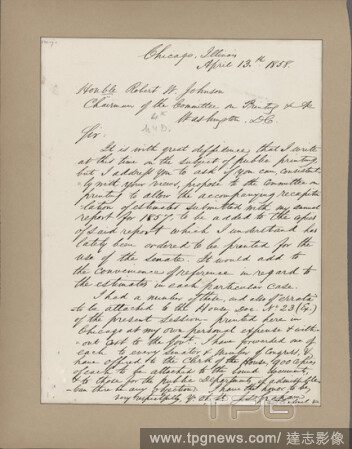 Chicago, Illinois
April 13.th 1858.
Honble Robert W. Johnson
Chairman of the Committee on Printing &
Washington, D.C.
Sir.
It is with great deffidence, that I write
at this time on the subject of public printing,
but I address you to ask if you can, consistent-
ly with your views, propose to the Committee on
printing to allow the accompanying recapitu-
lation of estimates submitted with my annual
report for 1857, to be added to the copies
of said report which I understand has
lately been ordered to be printed for the
use of the Senate. It would add to
the convenience of reference in regard to
the estimates in each particular case.
I had a number of these, and also of errata
to be attached to the House Doc. No 23 (Ex.)
of the present Session — printed here in
Chicago at my own personal expense & with-
out cost to the Govt. I have forwarded one of
each to every Senator & Member of Congress, &
have offered to the Clerk of the House, 900 copies
of each to be attached to the bound document,
& to those for the public Departments, if admissible
can there be any objection. I have the honor to be,
very respectfully, yr ob. st.
TPG
www.tpgnews.com / 達志影像